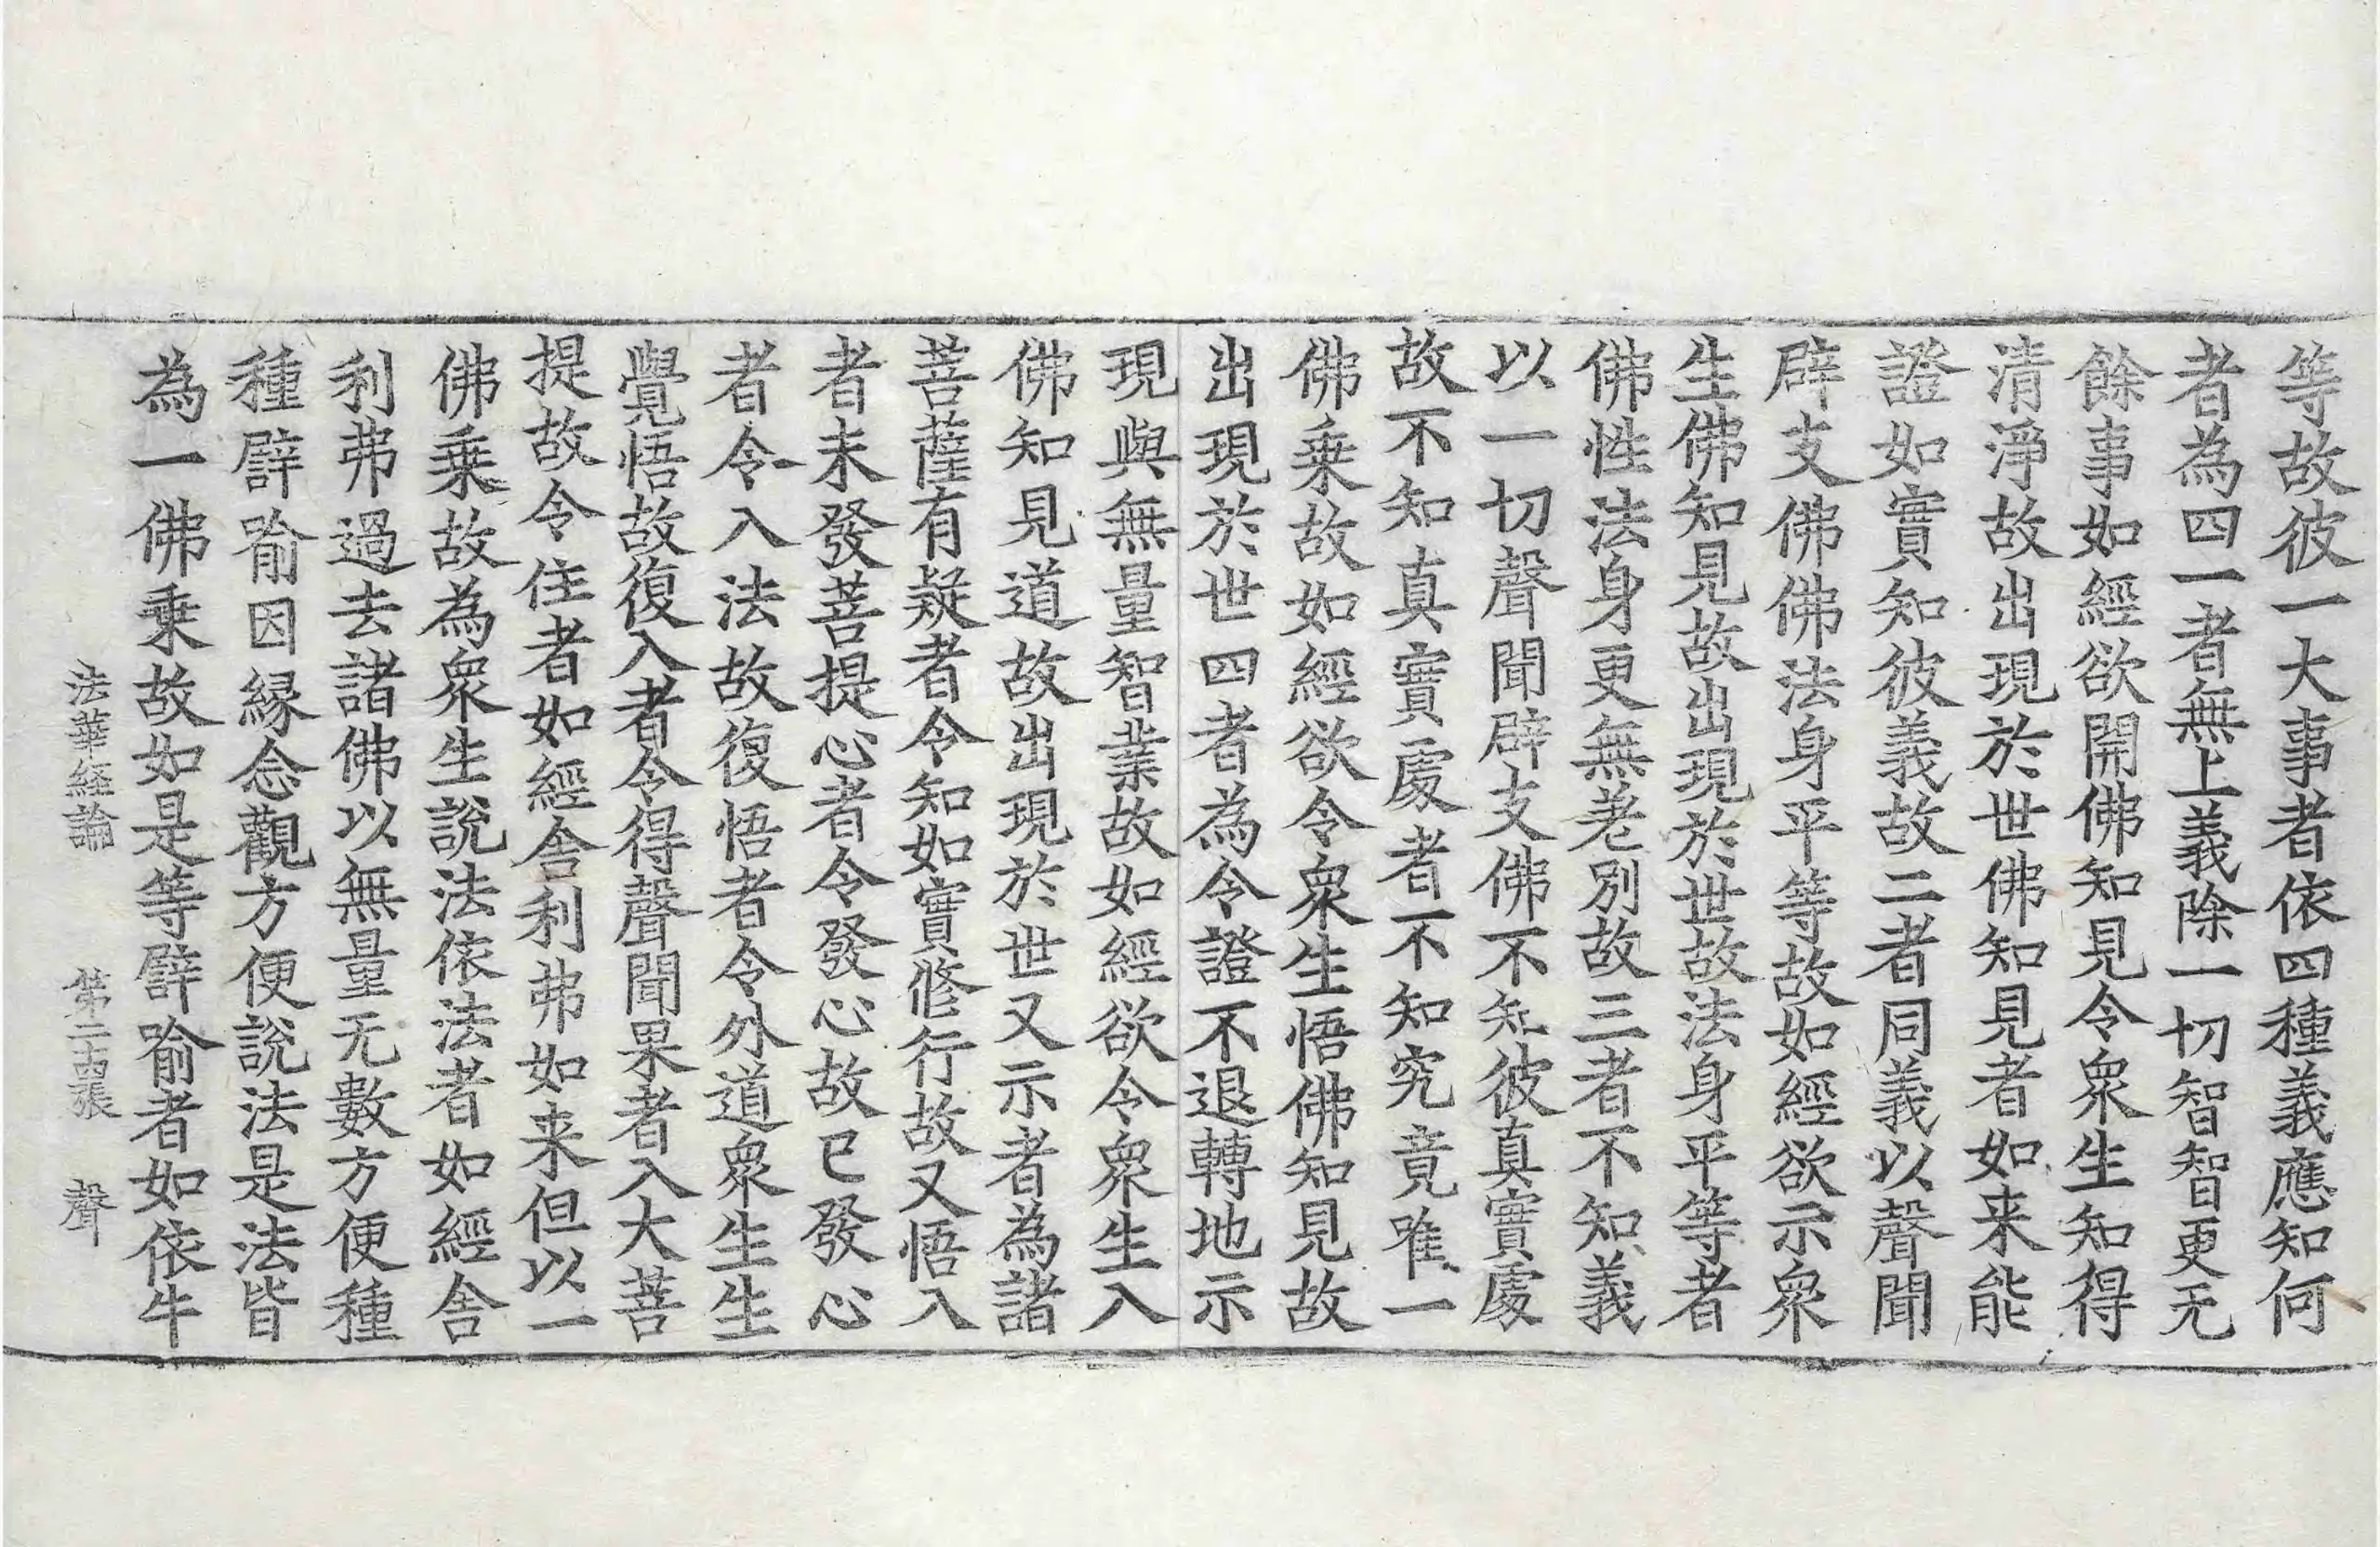 等故彼一大事者依四種義應知何
者為四一者無上義除一切智智更无
餘事如經欲開佛知見令衆生知得
清淨故出現於世佛知見者如来能
證如實知彼義故二者同義以聲聞
辟支佛佛法身平等故如經欲示衆
生佛知見故出現於世故法身平等者
佛性法身更無差別故三者不知義
以一切聲聞辟支佛不知彼真實處
故不知真實處者不知究竟唯一
佛乗故如經欲令衆生悟佛知見故
出現於世四者為令證不退轉地示
現與無量智業故如經欲令衆生入
佛知見道故出現於世又示者為諸
菩薩有疑者令知如實修行故又悟入
者未發菩提心者令發心故已發心
者令入法故復悟者令外道衆生生
覺悟故復入者令得聲聞果者入大菩
提故令住者如經舎利弗如来但以一
佛乗故為衆生說法依法者如經舎
利弗過去諸佛以無量无數方便種
種譬喻因縁念觀方便說法是法皆
為一佛乗故如是等譬喻者如依牛
法華経論 第二十四張 聲